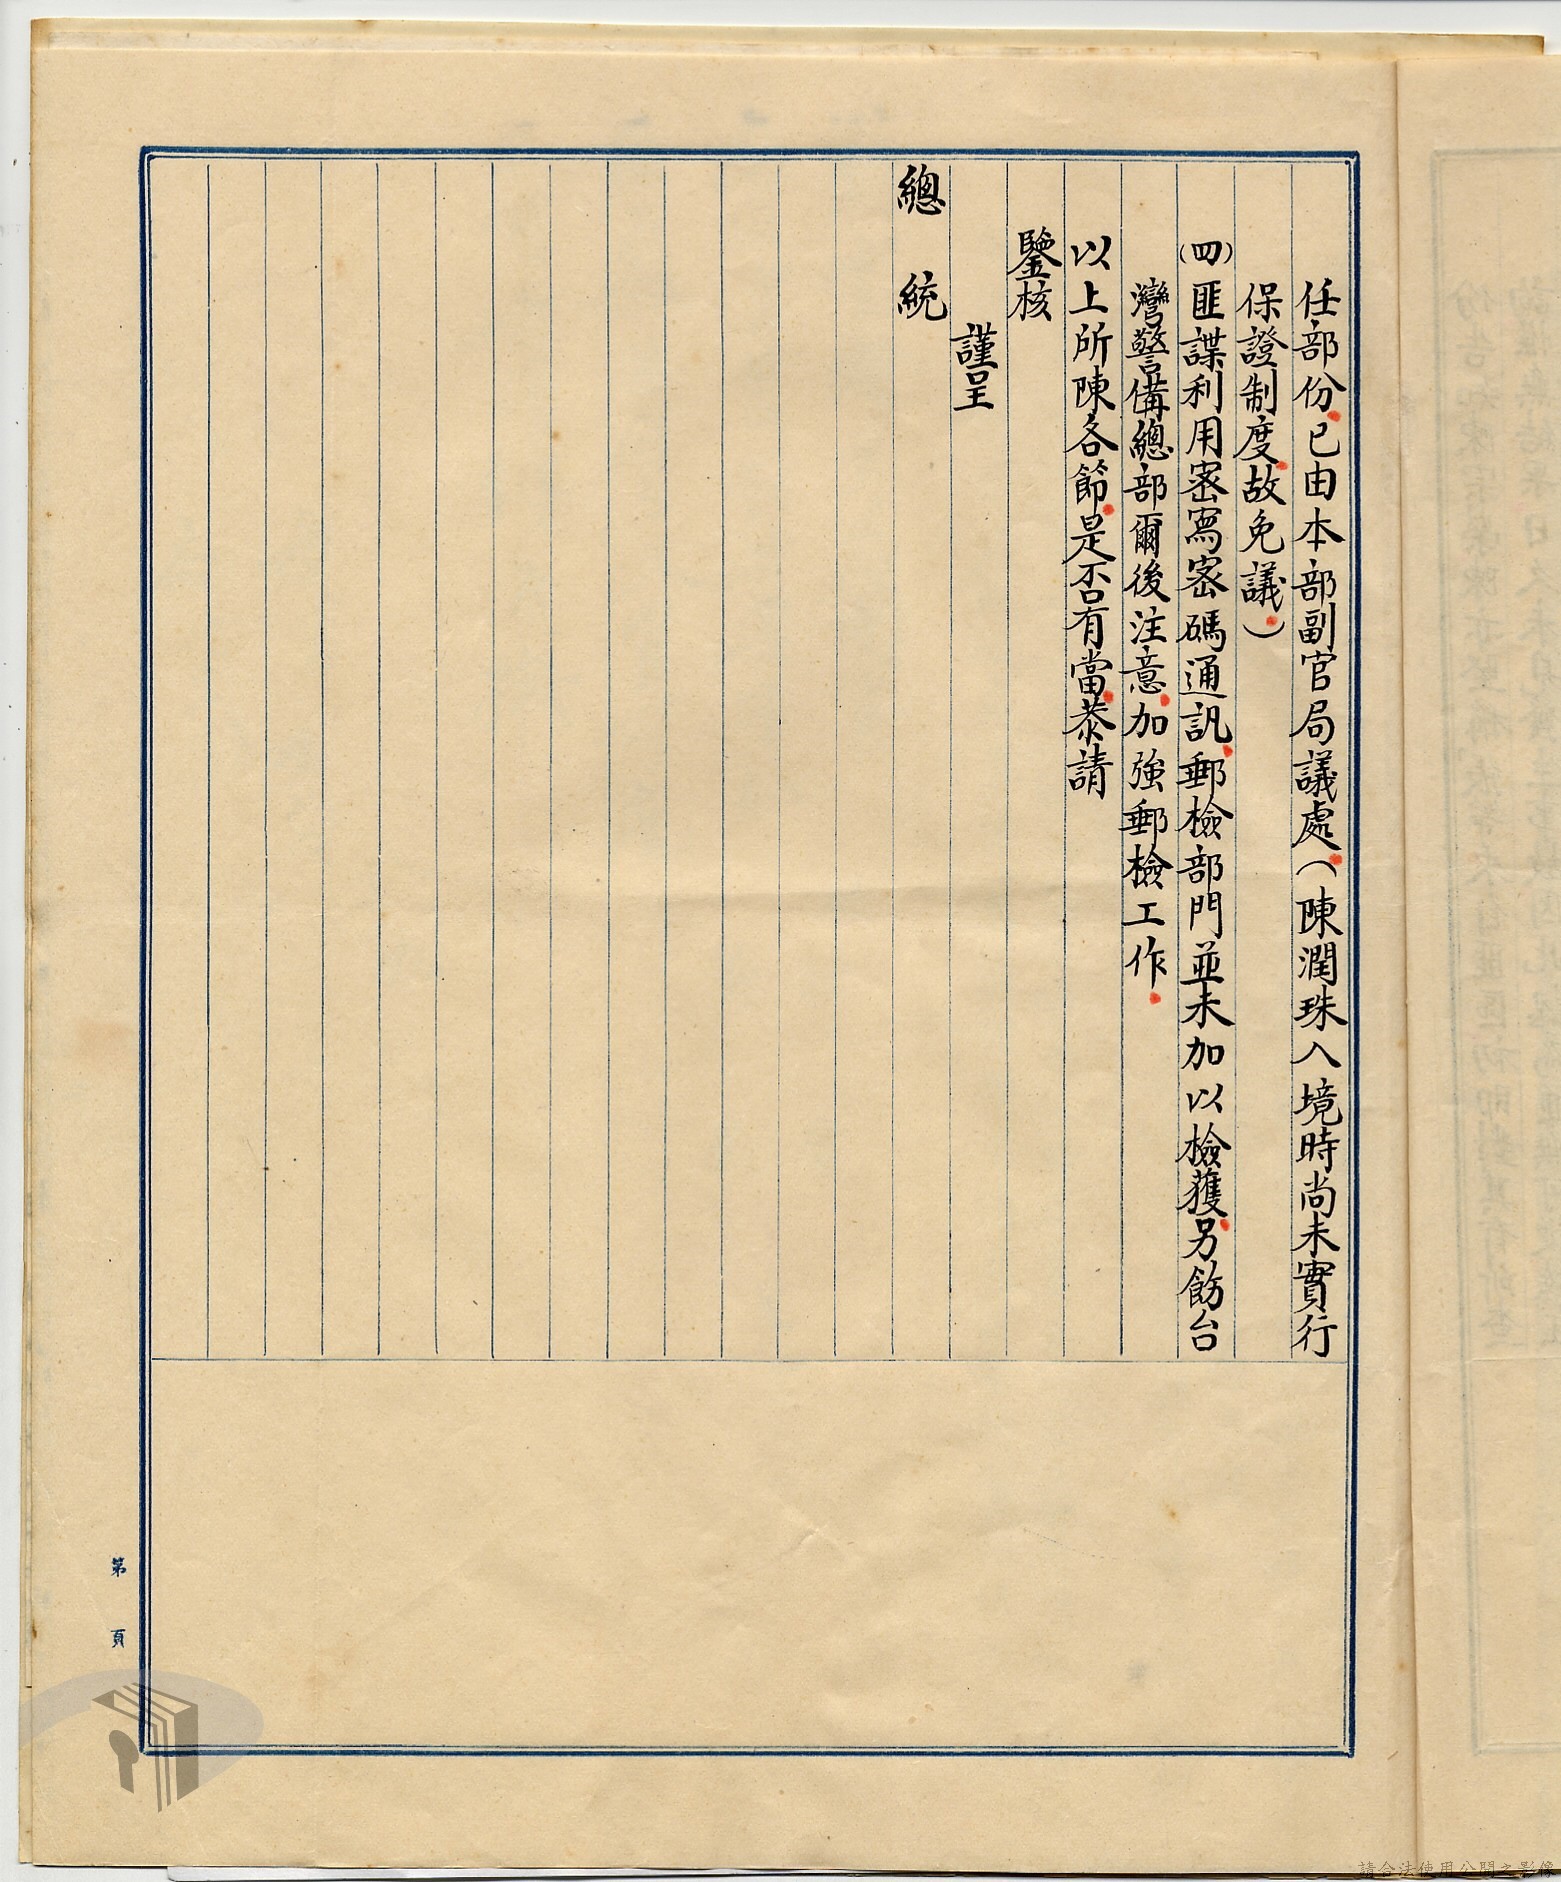 任部份已由本部副官局議處（陳潤珠入境時尚未實行
保證制度故免議）
㈣匪諜利用密寫密碼通訊郵檢部門並未加以檢獲另飭台
灣警備總部爾後注意加強郵檢工作
以上所陳各節是否有當恭請
鑒核
謹呈
總統
第 頁
請合法使用公開之影像